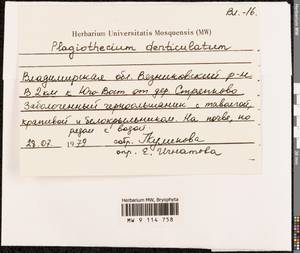 Вл.-16.
Herbarium Universitatis Mosquensis (MW)
Plagiothecium denticulatum
Владимирская обл. Вязниковский р-н
В 2 км к Юго-Вост. от дер.
Заболоченный черноольшаник с таволгой,
крапивой и белокрыльником. На почве, но
рядом с водой.
28.07. 1979 собр.
опр. Е. Игнатова
Herbarium MW, Bryophyta
MW 9 114 758